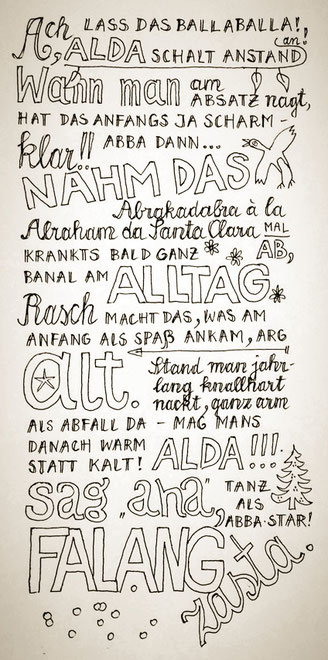 Ach, LASS DAS BALLABALLA!,
ALDA SCHALT ANSTAND an!
Wann man am
ABSATZ nagt,
HAT DAS ANFANGS JA SCHARM -
klar!! ABBA DANN...
NÄHM DAS
Abrakadabra à la
Abraham da Santa Clara MAL
AB,
KRANKTS BALD GANZ
BANAL AM ALLTAG
Rasch MACHT DAS, WAS AM
ANFANG ALS SPAß ANKAM, ARG
alt. Stand man jahr-
lang knallhart
nackt, ganz arm
ALS ABFALL DA - MAG MANS
DANACH WARM
STATT KALT! ALDA!!!.
sag „aha“, TANZ
ALS
ABBA-STAR!
FALANG
zasta.